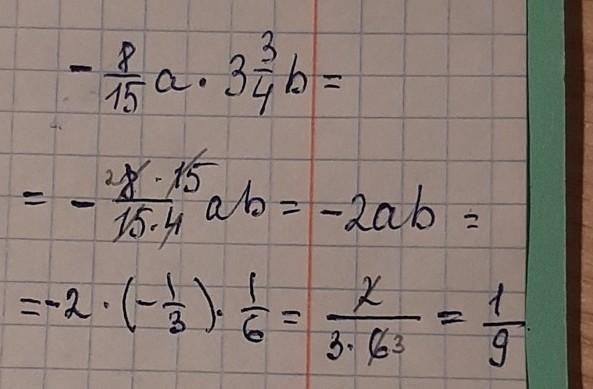 - 8/15 a · 3 3/4 b =
= - (8 · 15)/(15 · 4) ab = -2ab =
= -2 · (-1/3) · 1/6 = 2/(3 · 6) = 1/9